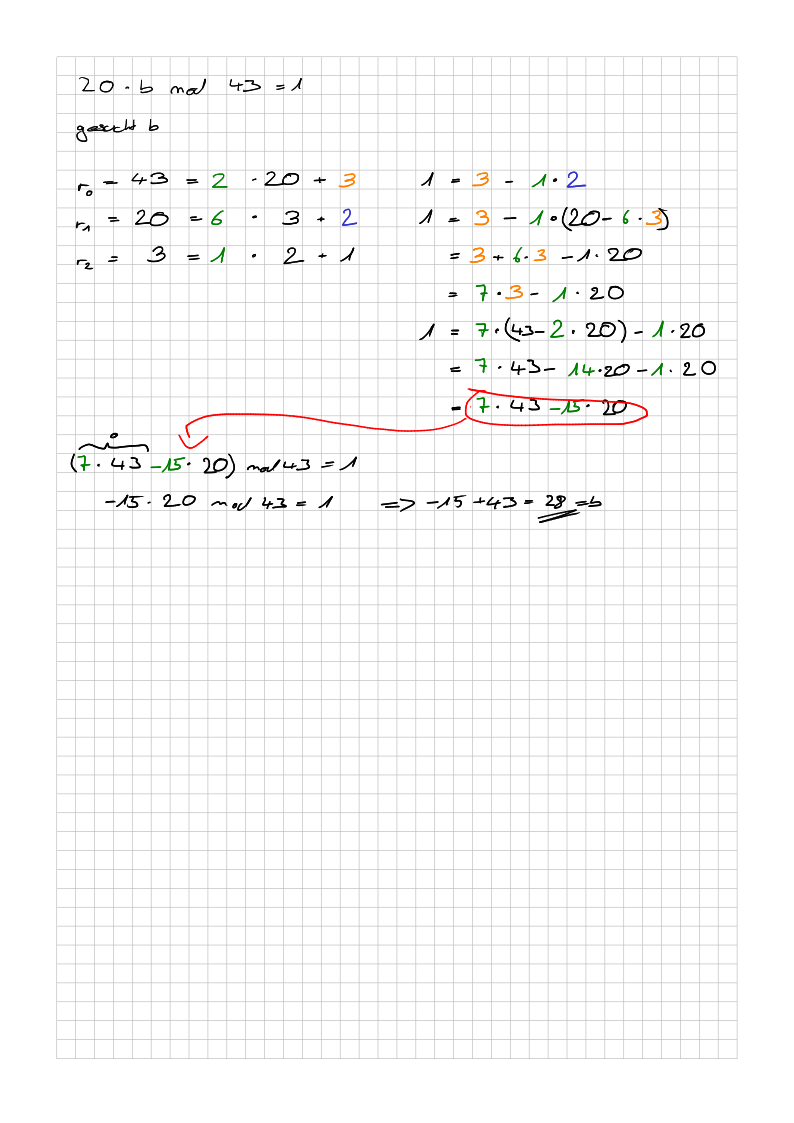 20 · b mod 43 = 1
gesucht b
r₀ = 43 = 2 · 20 + 3
r₁ = 20 = 6 · 3 + 2
r₂ = 3 = 1 · 2 + 1
1 = 3 - 1 · 2
1 = 3 - 1 · (20 - 6 · 3)
= 3 + 6 · 3 - 1 · 20
= 7 · 3 - 1 · 20
1 = 7 · (43 - 2 · 20) - 1 · 20
= 7 · 43 - 14 · 20 - 1 · 20
= 7 · 43 - 15 · 20
0
(7 · 43 - 15 · 20) mod 43 = 1
-15 · 20 mod 43 = 1 => -15 + 43 = 28 = b